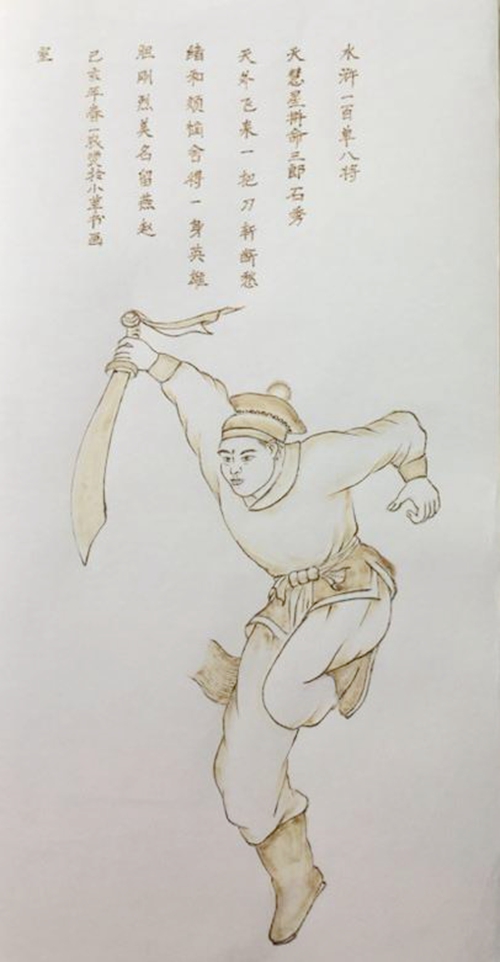 水浒一百单八将
天慧星拚命三郎石秀
天外飞来一把刀斩断愁
绪和烦恼舍得一身英雄
胆刚烈美名留燕赵
己亥年春一小草书画
室